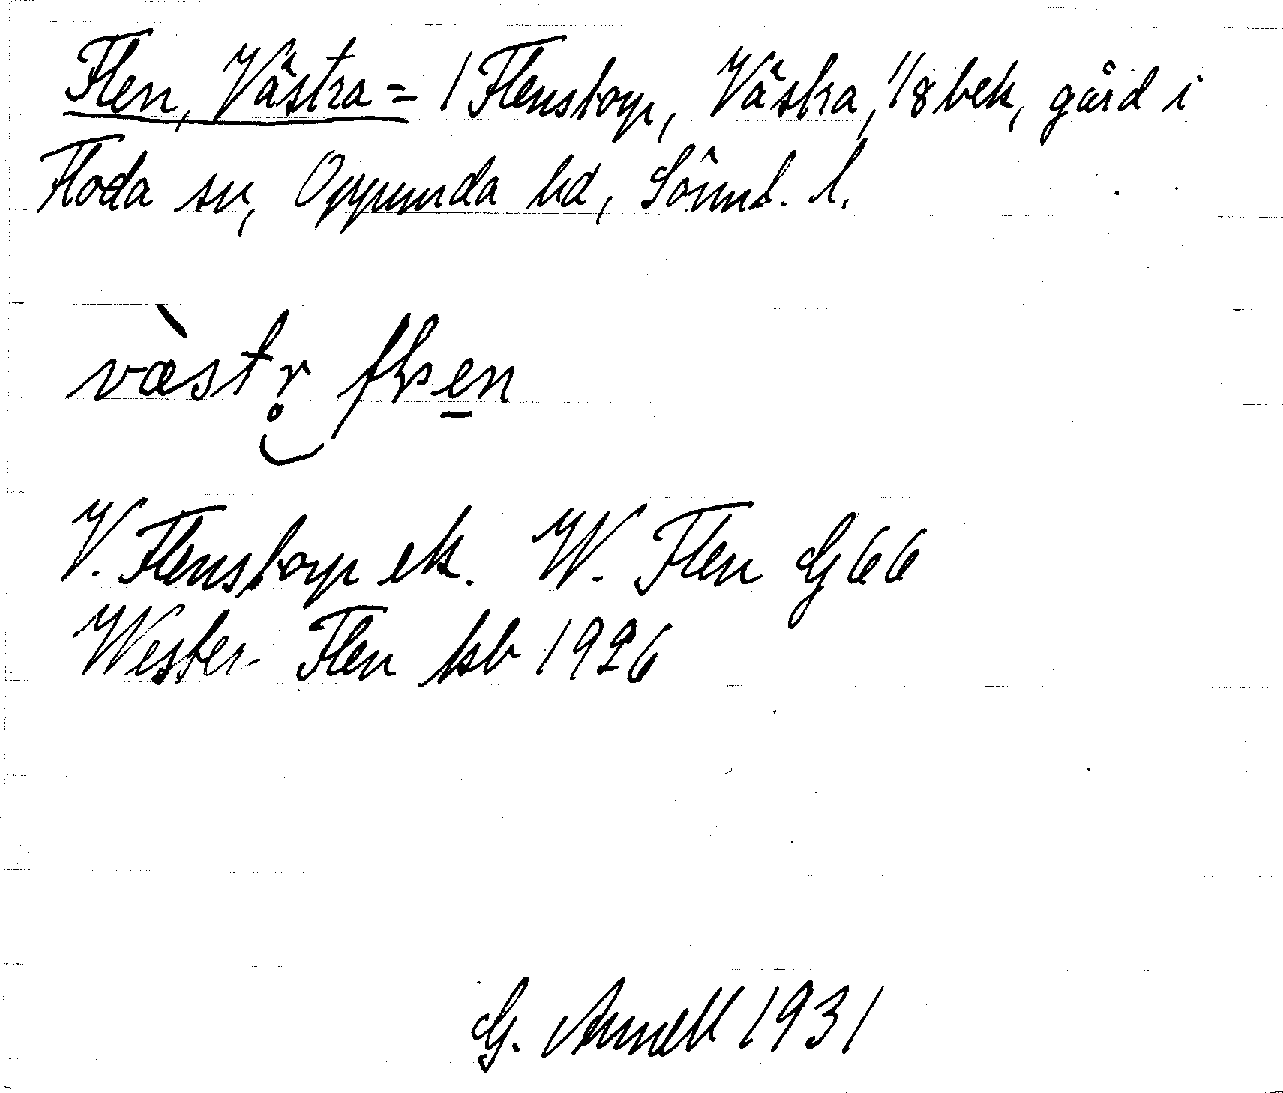 Flen, Västra = 1 Flenstorp, Västra, 1/8 bek, gård i
Floda sn, Oppunda hd, Sörml. l.
væstr̥ flen
V. Flenstorp ek. W. Flen G 66
Wester Flen ksb 1926
G. Arnell 1931